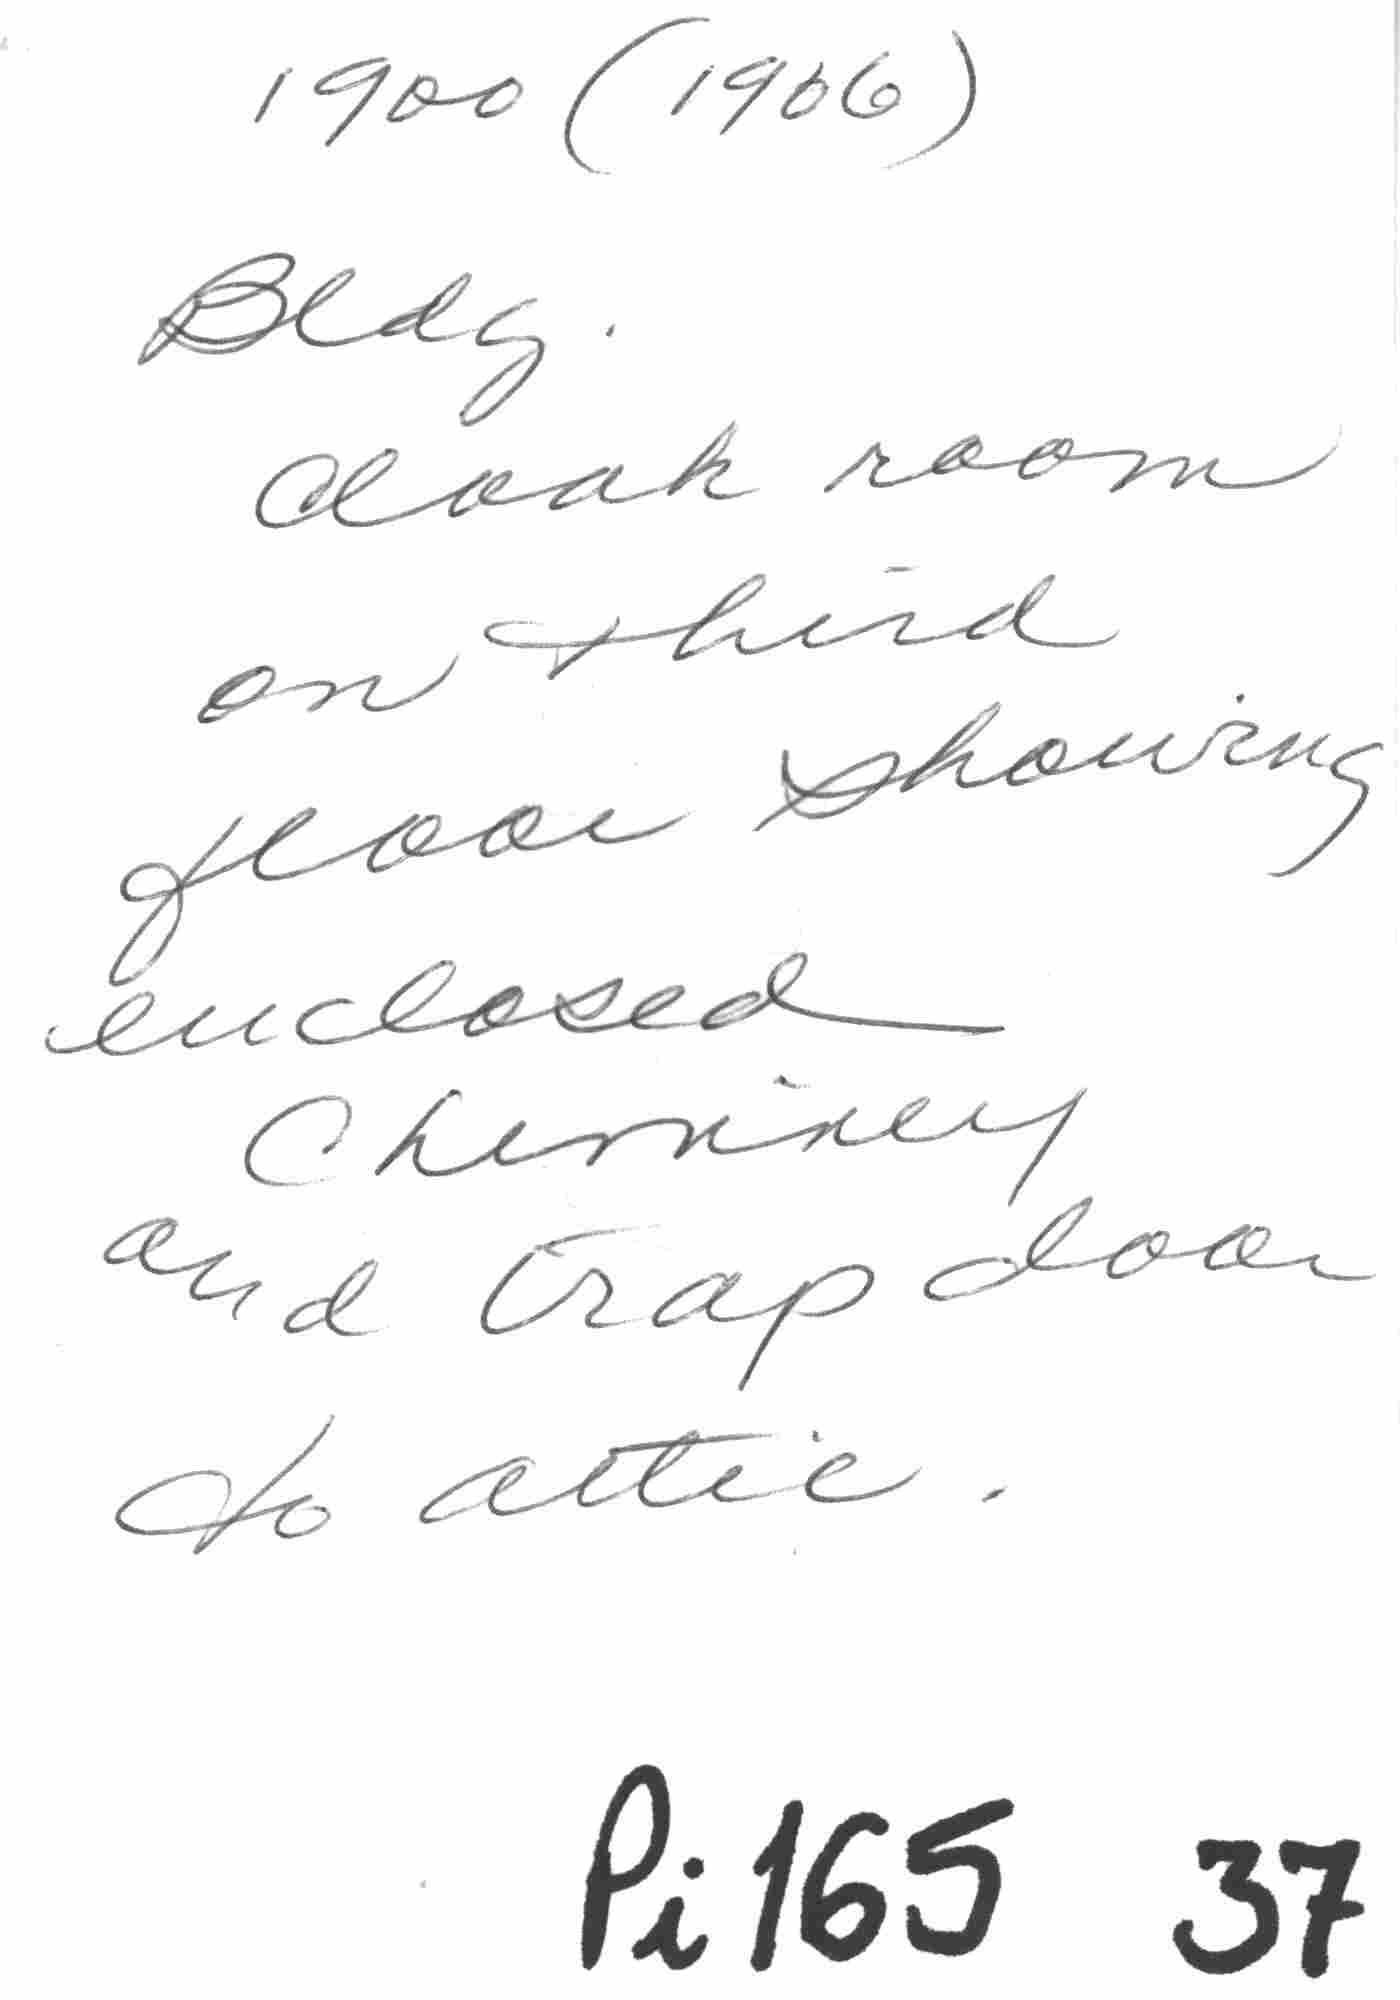 1900 (1906)
Bldg.
Cloak room
on third
floor showing
enclosed
Chimney
and trap door
to attic.
Pi 165 37